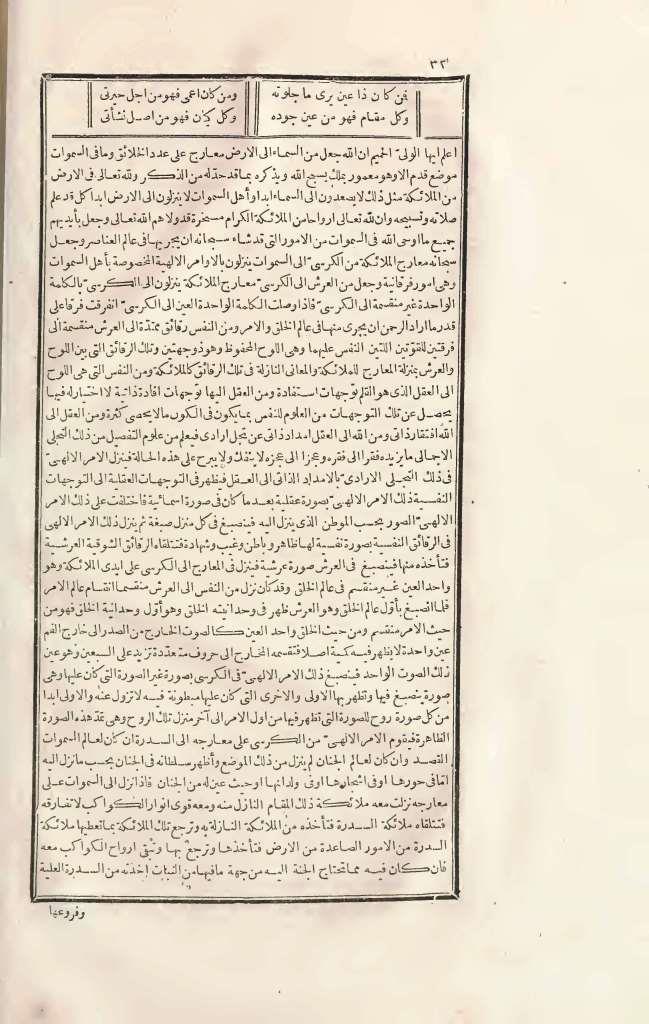 ٣٢
فمن كان ذا عين يرى ما جلوته ومن كان اعمى فهو من اجل حيرتى
وكل مقام فهو من عين جوده وكل كيان فهو من اصل نشأتى
اعلم ايها الولىّ الحميم ان الله جعل من السماء الى الارض معارج على عدد الخلائق ومافى السموات
موضع قدم الا وهو معمور بملك يسبح الله ويذكره بما قد حدّ له من الذكر ولله تعالى فى الارض
من الملائكة مثل ذلك لا يصعدون الى السماء ابدا وأهل السموات لا ينزلون الى الارض ابدا كل قد علم
صلاته وتسبيحه وان لله تعالى ارواحا من الملائكة الكرام مسخرة قد ولاهم الله تعالى وجعل بأيديهم
جميع ما اوحى الله فى السموات من الامور التى قد شاء سبحانه ان يجريها فى عالم العناصر وجعل
سبحانه معارج الملائكة من الكرسىّ الى السموات ينزلون بالاوامر الالهية المخصوصة بأهل السموات
وهى امور فرقانية وجعل من العرش الى الكرسىّ معارج الملائكة ينزلون الى الكرسىّ بالكلمة
الواحدة غير منقسمة الى الكرسىّ فاذا وصلت الكلمة الواحدة العين الى الكرسىّ انفرقت فرقا على
قدر ما اراد الرحمن ان يجرى منها فى عالم الخلق والامر ومن النفس رقائق ممتدّة الى العرش منقسمة الى
فرقتين للقوّتين اللتين النفس عليهما وهى اللوح المحفوظ وهو ذو وجهتين وتلك الرقائق التى بين اللوح
والعرش بمنزلة المعارج للملائكة والمعانى النازلة فى تلك الرقائق كالملائكة ومن النفس التى هى اللوح
الى العقل الذى هو القلم توّجهات استفادة ومن العقل اليها توّجهات افادة ذاتية لا اختيار له فيها
يحصل عن تلك التوجهات من العلوم للنفس بما يكون فى الكون ما لا يحصى كثرة ومن العقل الى
الله افتقار ذاتى ومن الله الى العقل امداد ذاتى عن تجل ارادى فيعلم من علوم التفصيل من ذلك التجلى
الاجمالى ما يزيده فقرا الى فقره وعجزا الى عجزه لا ينفك ولا يبرح على هذه الحالة فينزل الامر الالهىّ
فى ذلك التجلى الارادىّ بالامداد الذاتى الى العقل فيظهر فى التوجهات العقلية الى التوجهات
النفسية ذلك الامر الالهىّ بصورة عقلية بعد ما كان فى صورة اسمائية فاختلفت على ذلك الامر
الالهىّ الصور بحسب الموطن الذى ينزل اليه فينصبغ فى كل منزل صبغة ثم ينزل ذلك الامر الالهى
فى الرقائق النفسية بصورة نفسية لها ظاهر وباطن وغيب وشهادة فتتلقاه الرقائق الشوقية العرشية
فتأخذه منها فينصبغ فى العرش صورة عرشية فينزل فى المعارج الى الكرسى على ايدى الملائكة وهو
واحد العين غير منقسم فى عالم الخلق وقد كان نزل من النفس الى العرش منقسما انقسام عالم الامر
فلما انصبغ بأوّل عالم الخلق وهو العرش ظهر فى وحدانية الخلق وهو أوّل وحدانية الخلق فهو من
حيث الامر منقسم ومن حيث الخلق واحد العين كالصوت الخارج من الصدر الى خارج الفم
عين واحدة لا يظهر فيه كمية اصلا فتقسمه المخارج الى حروف متعدّدة تزيد على السبعين وهو عين
ذلك الصوت الواحد فينصبغ ذلك الامر الالهىّ فى الكرسى بصورة غير الصورة التى كان عليها وهى
صورة ينصبغ فيها وتظهر بها الاولى والاخرى التى كان عليها مبطونة فيه لا تزول عنه والاولى ابدا
من كل صورة روح للصورة التى تظهر فيها من اول الامر الى آخر منزل تلك الروح وهى تمدّ هذه الصورة
الظاهرة فيقوم الامر الالهىّ من الكرسى على معارجه الى السدرة ان كان لعالم السموات
القصد وان كان لعالم الجنان لم ينزل من ذلك الموضع وأظهر سلطانه فى الجنان بحسب ما نزل اليه
امّا فى حورها او فى اشجارها او فى ولدانها او حيث عين له من الجنان فاذا نزل الى السموات على
معارجه نزلت معه ملائكة ذلك المقام النازل منه ومعه قوى انوار الكواكب لا تفارقه
فتتلقاه ملائكة السدرة فتأخذه من الملائكة النازلة به وترجع تلك الملائكة بما تعطيها ملائكة
السدرة من الامور الصاعدة من الارض فتأخذها وترجع بها وتبقى ارواح الكواكب معه
فان كان فيه مما تحتاج الجنة اليه من جهة ما فيها من النبات اخذته من السدرة العلية
وفروعها